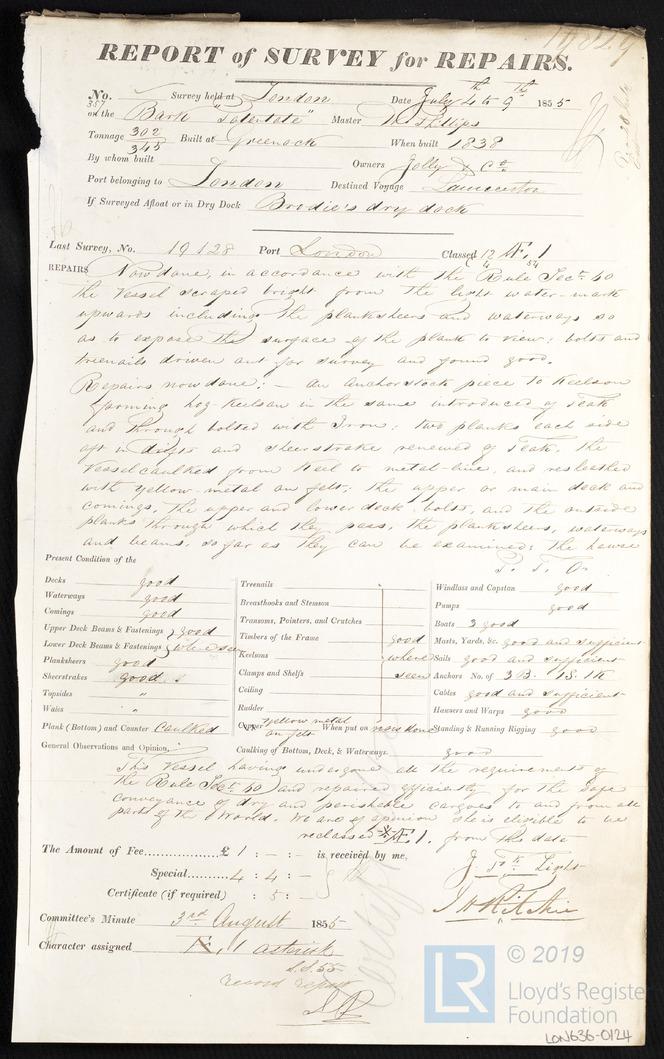 REPORT of SURVEY for REPAIRS.
No. 357 Survey held at London Date July 4th to 9th 1855
on the Bark "Potentate" Master W Phillips
Tonnage 302 345 Built at Greenock When built 1838
By whom built Owners Jolly & Co
Port belonging to London Destined Voyage Launceston
If Surveyed Afloat or in Dry Dock Brodie's dry dock
Last Survey, No. 19128 Port London Classed 12 Æ. 1
REPAIRS Now done, in accordance with the Rule Sect. 60
the Vessel scraped bright from the light water-mark
upwards including the planksheers and waterways so
as to expose the surface of the plank to view: bolts and
treenails driven out for survey and found good.
Repairs now done: — An anchorstock piece to Keelson
forming hog-Keelson in the same introduced of Teak
and through bolted with Iron: two planks each side
aft in and sheerstrake renewed of Teak. the
Vessel caulked from Keel to metal-line, and
with yellow-metal on felt; the upper or main deck and
comings, the upper and lower deck bolts, and the outside
planks through which they pass, the planksheers, waterways
and beams, so far as they can be examined; the hawse
P. T. O.
Present Condition of the
Decks good
Waterways good
Comings good
Upper Deck Beams & Fastenings good
Lower Deck Beams & Fastenings where seen
Planksheers good
Sheerstrakes good
Topsides "
Wales "
Plank (Bottom) and Counter Caulked
Treenails
Breasthooks and Stemson
Transoms, Pointers, and Crutches
Timbers of the Frame good
Keelsons where
Clamps and Shelfs seen
Ceiling
Rudder
Copper yellow metal on felt When put on now done
Caulking of Bottom, Deck, & Waterways. good
Windlass and Capstan good
Pumps good
Boats 3 good
Masts, Yards, &c. good and sufficient
Sails good and sufficient
Anchors No. of 3 B. 1 S. 1 K
Cables good and sufficient
Hawsers and Warps good
Standing & Running Rigging good
General Observations and Opinion.
This Vessel having undergone all the requirements of
the Rule Sect. 60 and repaired efficiently for the safe
conveyance of dry and perishable cargoes to and from all
parts of the World. We are of opinion she is eligible to be
reclassed * Æ. 1. from this date
The Amount of Fee £ 1 : – : – is received by me,
Special 4 : 4 : –
Certificate (if required) : 5 : –
Light
J H Ritchie
Committee's Minute 3rd August 1855
Character assigned Æ. 1 asterisk
S.S. 55
record report
© 2019
LR
Lloyd's Register
Foundation
LON636-0124